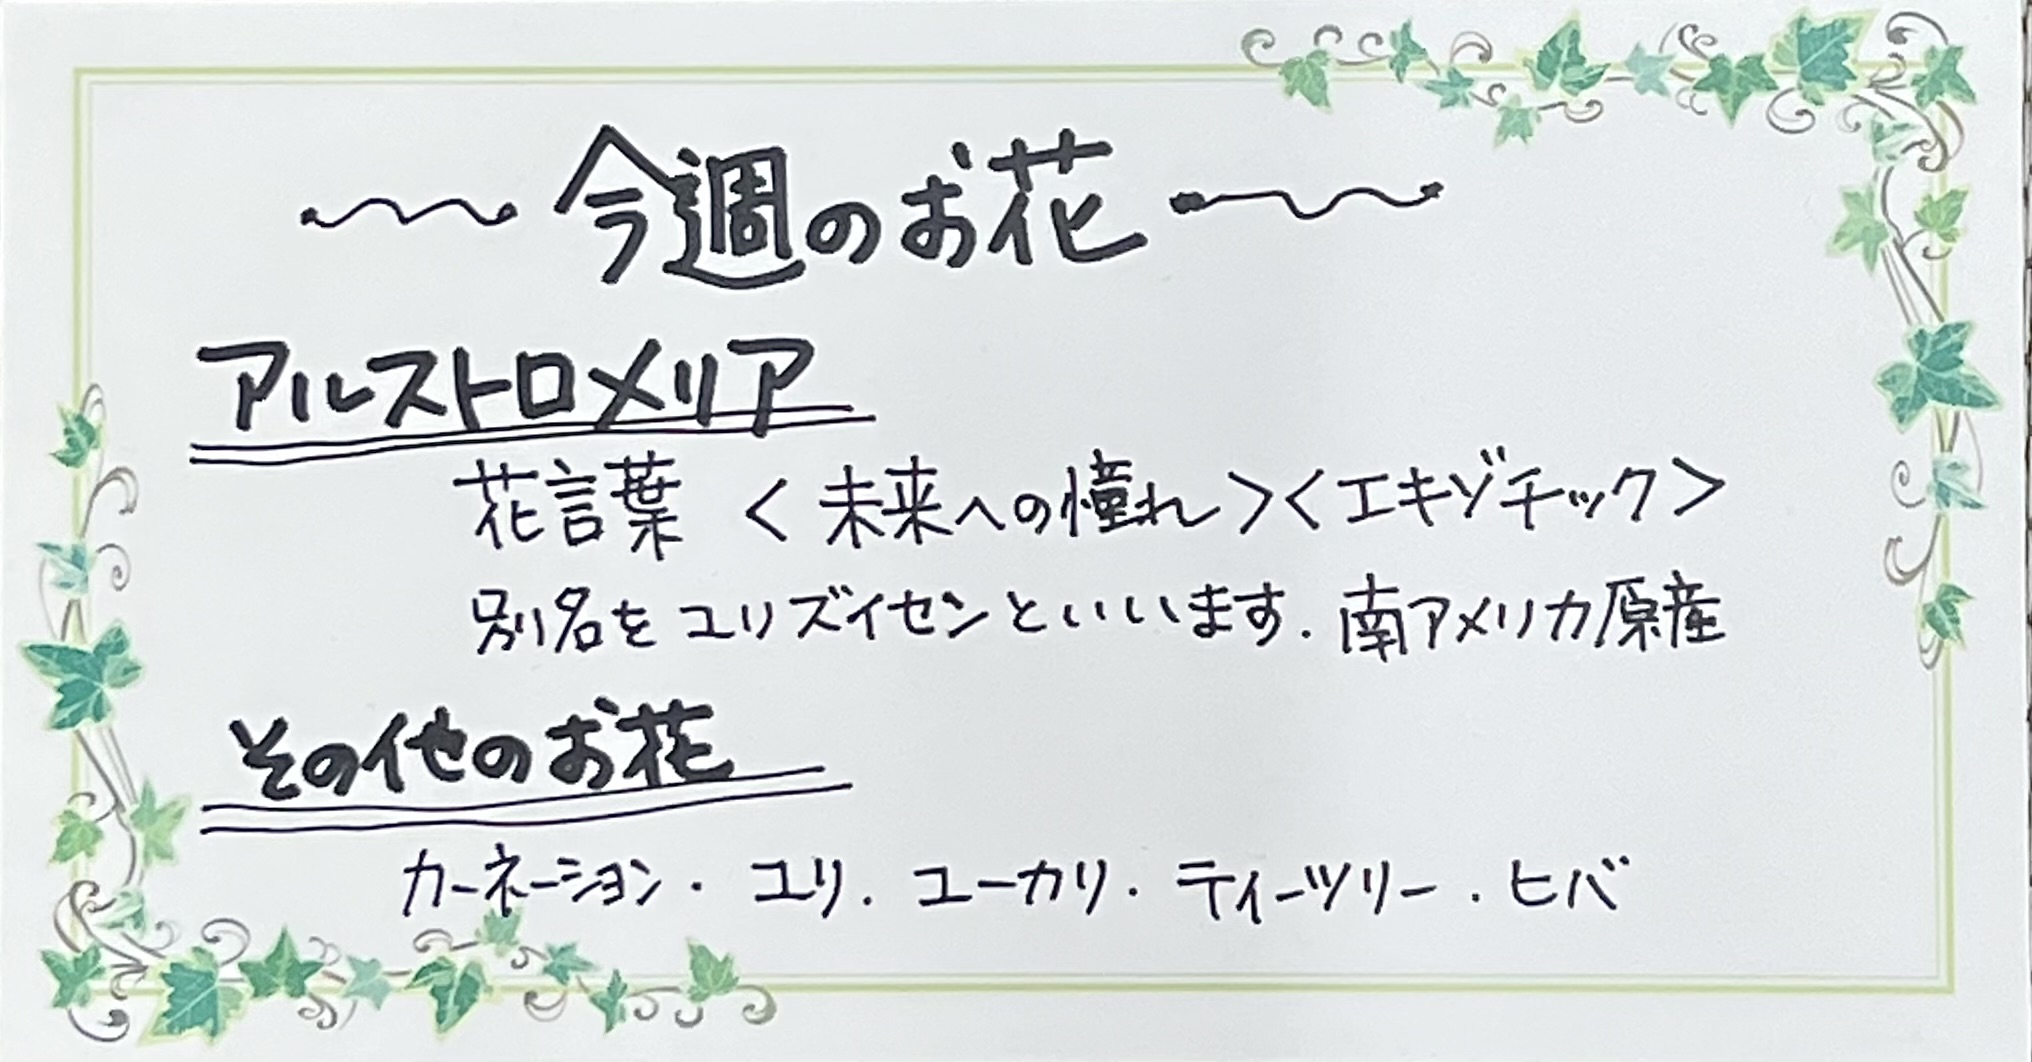 〜今週のお花〜
アルストロメリア
花言葉 <未来への憧れ><エキゾチック>
別名をユリズイセンといいます.南アメリカ原産
その他のお花
カーネーション・ユリ.ユーカリ・ティーツリー.ヒバ